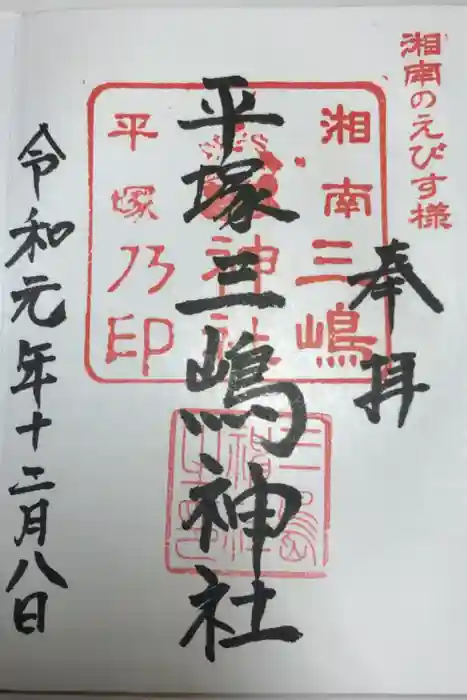 湘南のえびす様
奉拝
湘南三嶋
神社
平塚乃印
平塚三嶋神社
三嶋
神社
之印
令和元年十二月八日